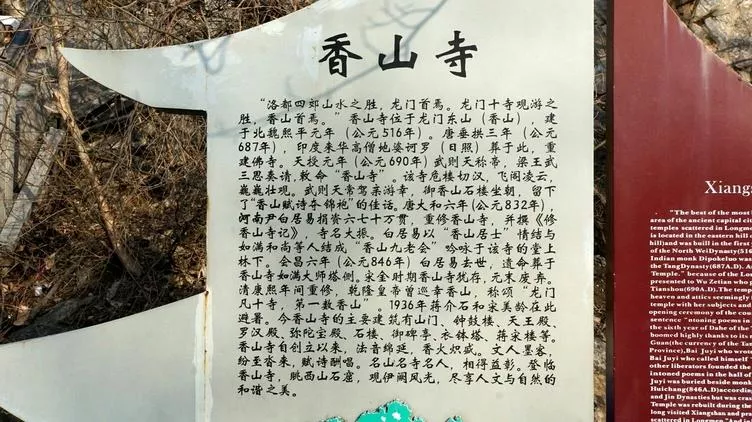 香山寺
“洛都四郊山水之胜，龙门首焉。龙门十寺观游之
胜，香山首焉。”香山寺位于龙门东山（香山），建
于北魏熙平元年（公元516年）。唐垂拱三年（公元
687年），印度来华高僧地婆诃罗（日照）葬于此，重
建佛寺。天授元年（公元690年）武则天称帝，梁王武
三思奏请，敕命“香山寺”。该寺危楼切汉，飞阁凌云，
巍巍壮观。武则天常驾亲游幸，御香山石楼坐朝，留下
了“香山赋诗夺锦袍”的佳话。唐大和六年(公元832年)，
河南尹白居易捐资六七十万贯，重修香山寺，并撰《修
香山寺记》，寺名大振。白居易以“香山居士”情结与
如满和尚等人结成“香山九老会”吟咏于该寺的堂上
林下。会昌六年(公元846年)白居易去世，遗命葬于
香山寺如满大师塔侧。宋金时期香山寺犹存，元末废弃。
清康熙年间重修，乾隆皇帝曾巡幸香山，称颂“龙门
凡十寺，第一数香山”。1936年蒋介石和宋美龄在此
避暑。今香山寺的主要建筑有山门、钟鼓楼、天王殿、
罗汉殿、弥陀宝殿、石楼、御碑亭、衣钵塔、蒋宋楼等。
香山寺自创立以来，法音绵延，香火炽盛。文人墨客，
纷至沓来，赋诗酬唱。名山名寺名人，相得益彰。登临
香山寺，眺西山石窟，观伊阙风光，尽享人文与自然的
和谐之美。
Xiangs
"The best of the most
area of the ancient capital cit
temples scattered in Longme
is located in the eastern hill o
hill)and was built in the first
of the North WeiDynasty(516
Indian monk Dipokeluo was
the TangDynasty(687A.D). A
Temple." because of the Lon
presented to Wu Zetian who p
Tianshou(690A.D).The temp
heaven and attics seemingly i
temple with her subjects and
opening ceremony of the cour
sentence "ntoning poems in
the sixth year of Dahe of the
boomed highly thanks to its r
Guan(the currency of the Tan
Province),Bai Juyi who wrot
Bai Juyi who called himself
other liberators founded the
intoned poems in the hall of
Juyi was buried beside monk
Huichang(846A.D)according
and Jin Dynasties but was can
Temple was rebuilt during the
long visited Xiangshan and pra
scattered in Longmen